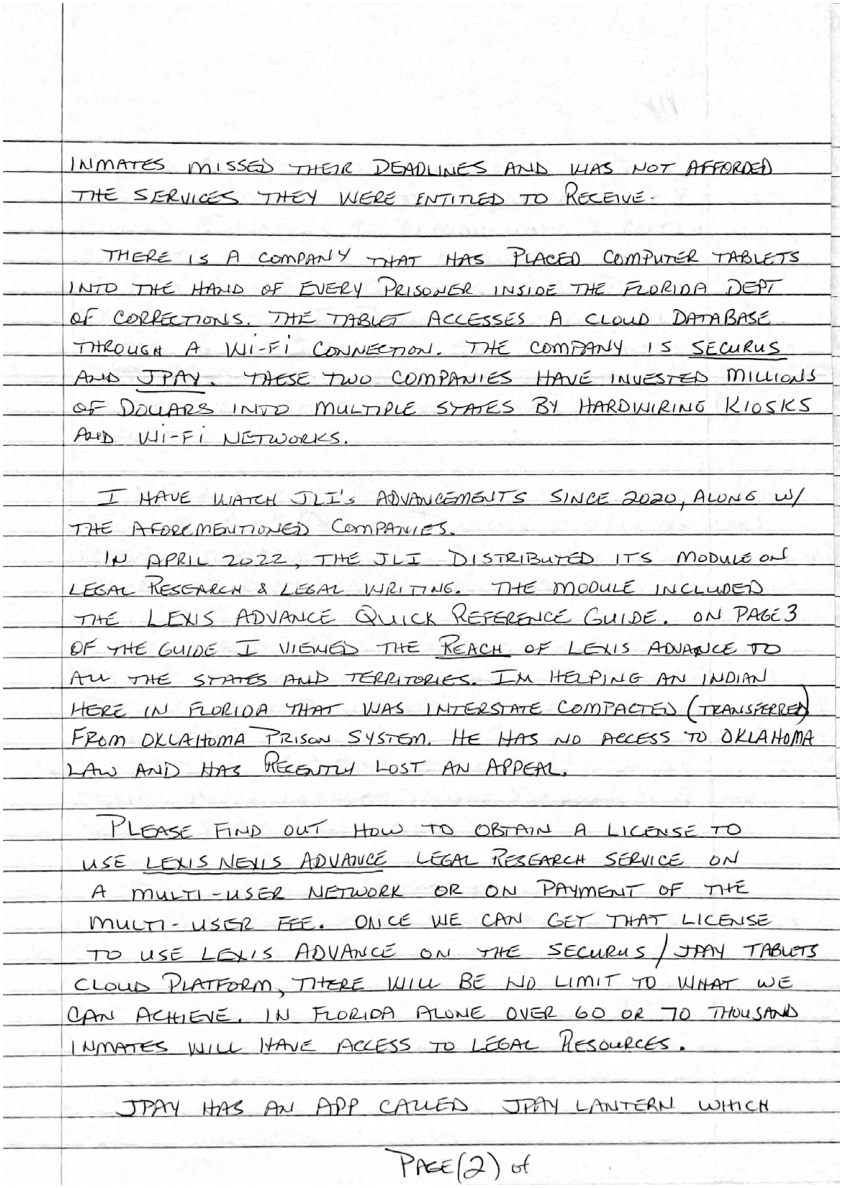 INMATES MISSED THEIR DEADLINES AND WAS NOT AFFORDED
THE SERVICES THEY WERE ENTITLED TO RECEIVE.
THERE IS A COMPANY THAT HAS PLACED COMPUTER TABLETS
INTO THE HAND OF EVERY PRISONER INSIDE THE FLORIDA DEPT
OF CORRECTIONS. THE TABLET ACCESSES A CLOUD DATABASE
THROUGH A Wi-Fi CONNECTION. THE COMPANY IS SECURUS
AND JPAY. THESE TWO COMPANIES HAVE INVESTED MILLIONS
OF DOLLARS INTO MULTIPLE STATES BY HARDWIRING KIOSKS
AND Wi-Fi NETWORKS.
I HAVE WATCH JLI's ADVANCEMENTS SINCE 2020, ALONG W/
THE AFOREMENTIONED COMPANIES.
IN APRIL 2022, THE JLI DISTRIBUTED ITS MODULE ON
LEGAL RESEARCH & LEGAL WRITING. THE MODULE INCLUDED
THE LEXIS ADVANCE QUICK REFERENCE GUIDE. ON PAGE 3
OF THE GUIDE I VIEWED THE REACH OF LEXIS ADVANCE TO
ALL THE STATES AND TERRITORIES. IM HELPING AN INDIAN
HERE IN FLORIDA THAT WAS INTERSTATE COMPACTED (TRANSFERRED)
FROM OKLAHOMA PRISON SYSTEM. HE HAS NO ACCESS TO OKLAHOMA
LAW AND HAS RECENTLY LOST AN APPEAL.
PLEASE FIND OUT HOW TO OBTAIN A LICENSE TO
USE LEXIS NEXIS ADVANCE LEGAL RESEARCH SERVICE ON
A MULTI-USER NETWORK OR ON PAYMENT OF THE
MULTI-USER FEE. ONCE WE CAN GET THAT LICENSE
TO USE LEXIS ADVANCE ON THE SECURUS/JPAY TABLETS
CLOUD PLATFORM, THERE WILL BE NO LIMIT TO WHAT WE
CAN ACHIEVE. IN FLORIDA ALONE OVER 60 OR 70 THOUSAND
INMATES WILL HAVE ACCESS TO LEGAL RESOURCES.
JPAY HAS AN APP CALLED JPAY LANTERN WHICH
PAGE (2) of